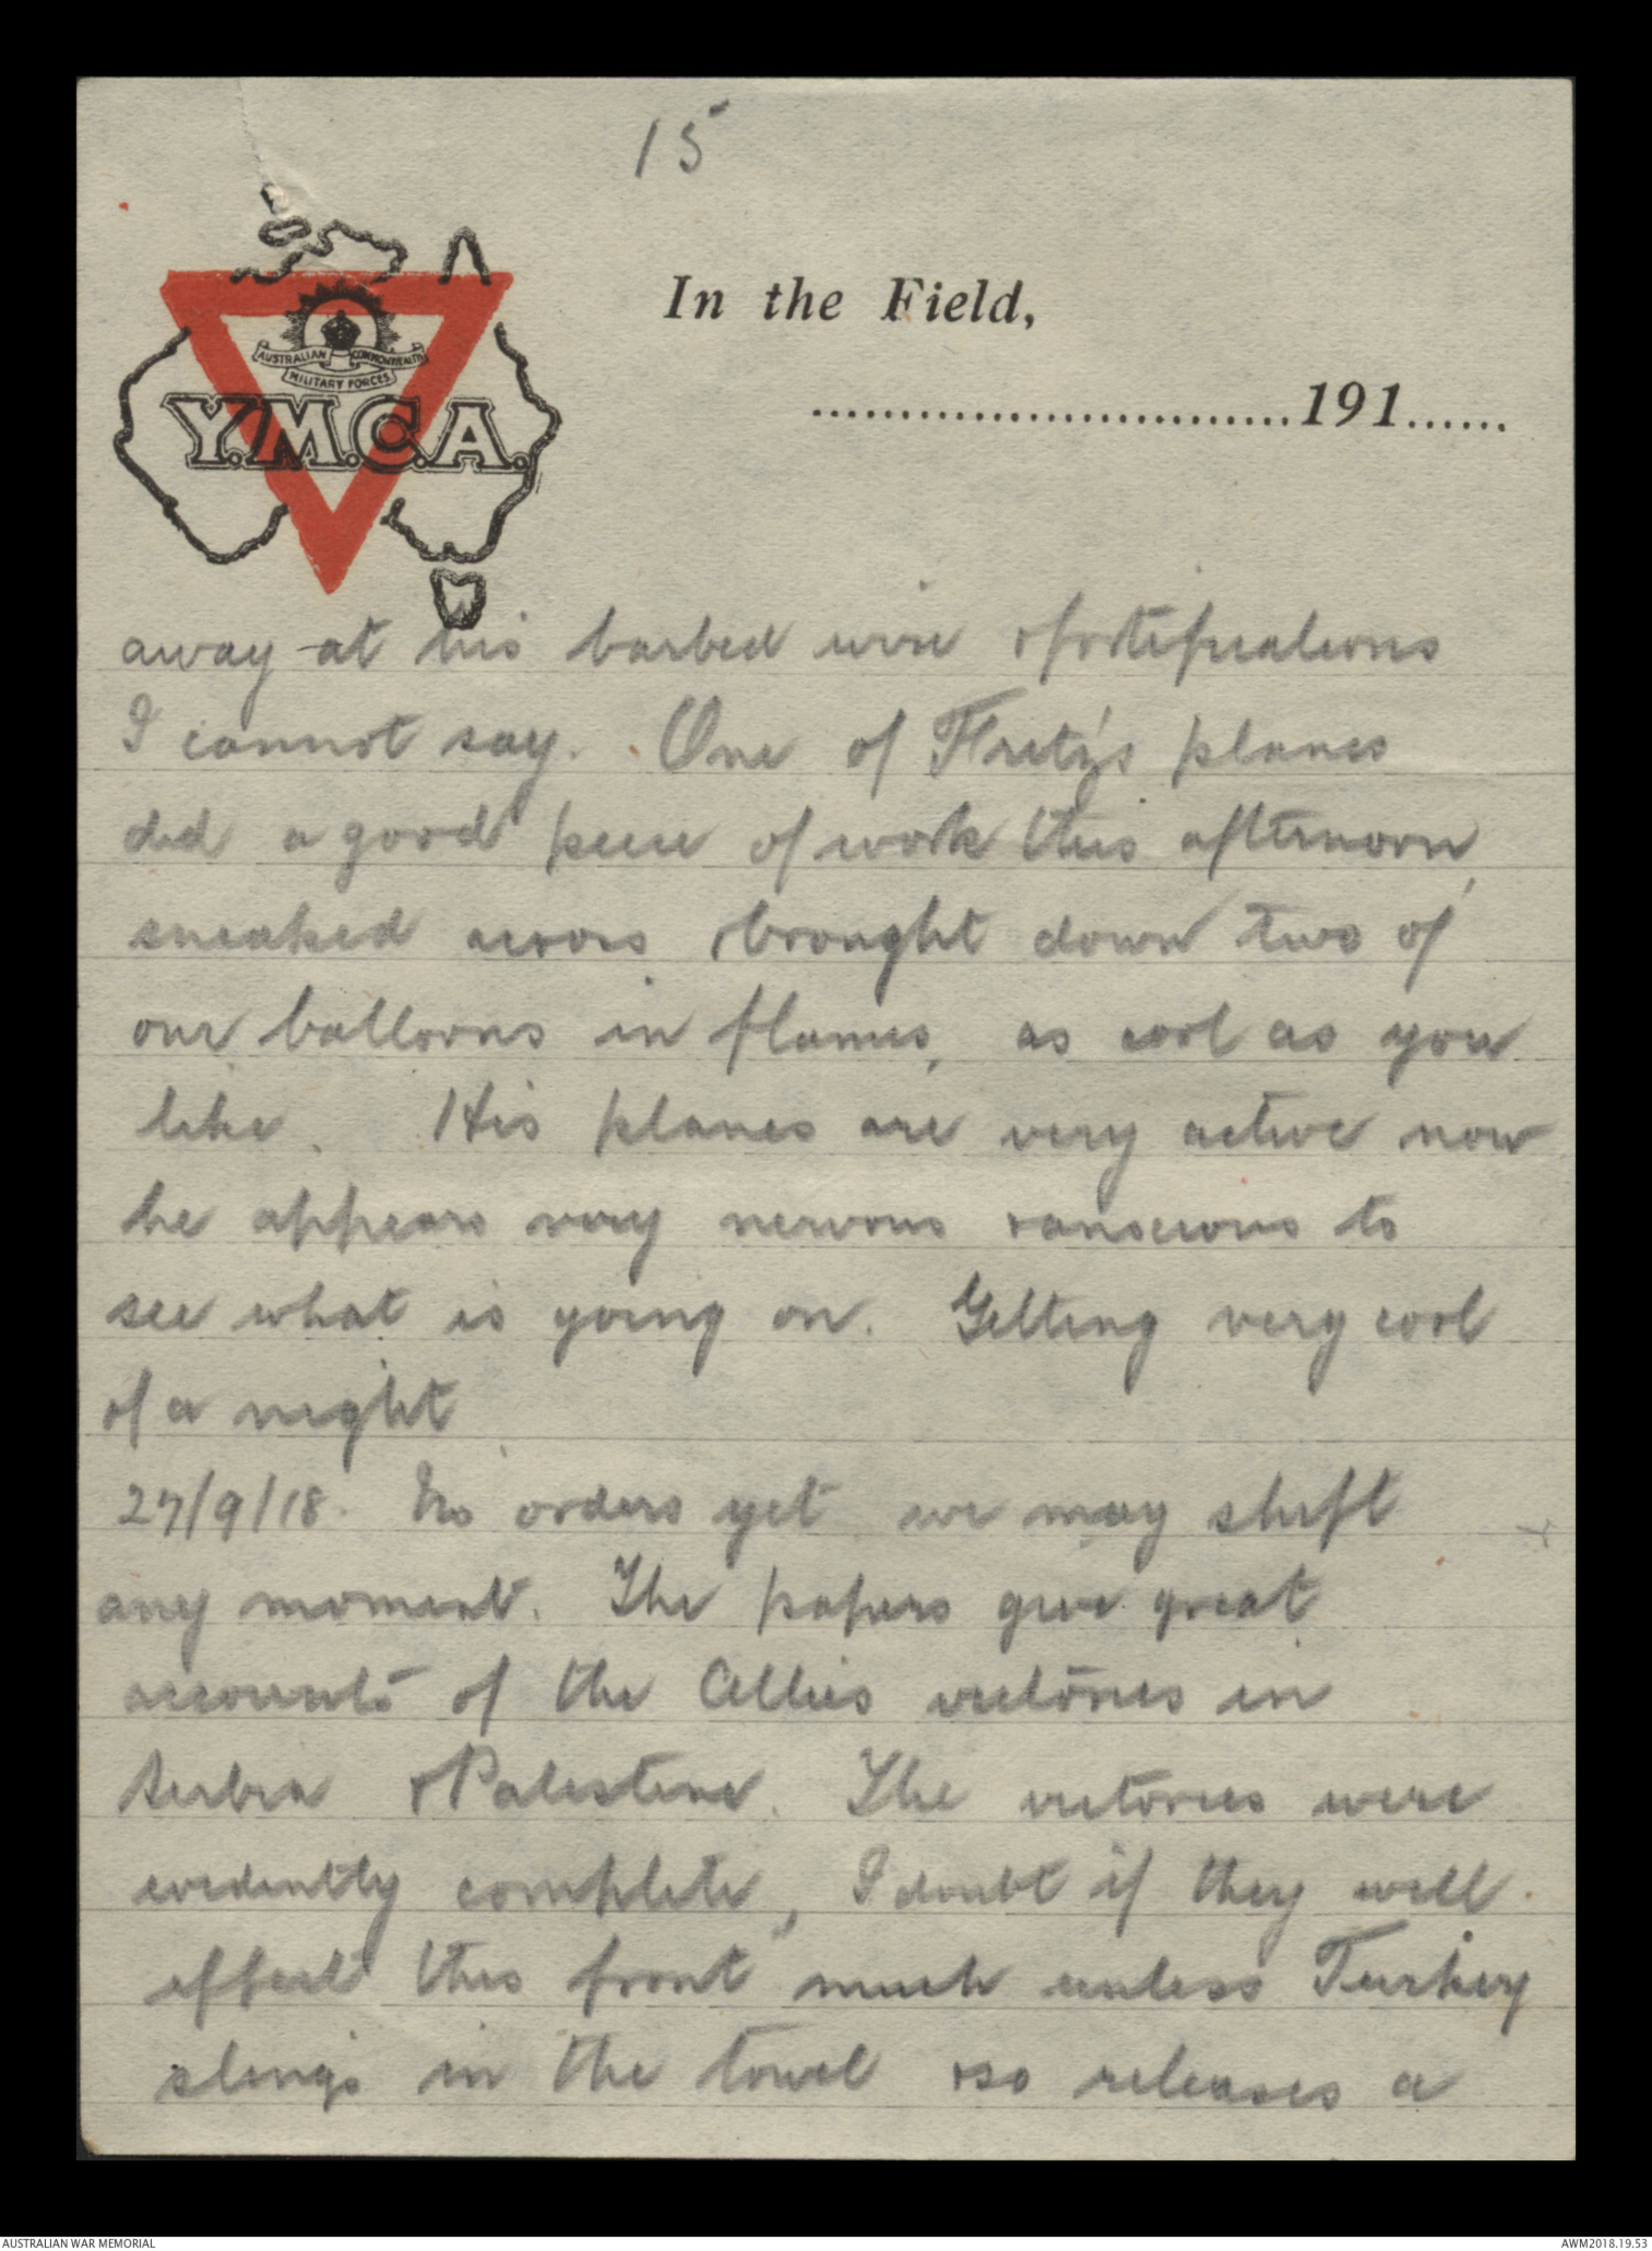 15
AUSTRALIAN COMMONWEALTH
MILITARY FORCES
Y.M.C.A.
In the Field,
............................191......
away at his barbed wire & fortifications
I cannot say. One of Fritz's planes
did a good piece of work this afternoon,
sneaked across & brought down two of
our balloons in flames, as cool as you
like. His planes are very active now
he appears very nervous & anscious to
see what is going on. Getting very cool
of a night
27/9/18. No orders yet we may shift
any moment. The papers give great
accounts of the Allies victories in
Serbia & Palestine. The victories were
evidently complete, I doubt if they will
effect this front much unless Turkey
slings in the towel & so releases a
AUSTRALIAN WAR MEMORIAL
AWM2018.19.53